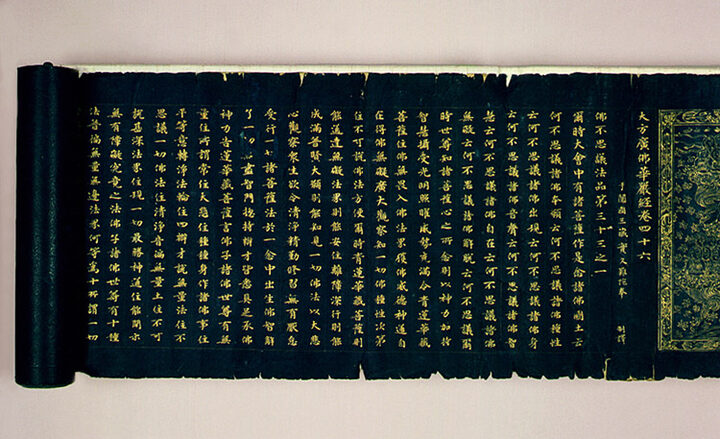 大方廣佛華嚴經卷四十六
于闐國三藏實叉難陀奉 制譯
佛不思議法品第三十三之一
爾時大會中有諸菩薩作是念諸佛國土云
何不思議諸佛本願云何不思議諸佛種性
云何不思議諸佛出現云何不思議諸佛身
云何不思議諸佛音聲云何不思議諸佛智
慧云何不思議諸佛自在云何不思議諸佛
無礙云何不思議諸佛解脫云何不思議爾
時世尊知諸菩薩心之所念則以神力加持
智慧攝受光明照曜威勢充滿令青蓮華藏
菩薩住佛無畏入佛法界獲佛威德神通自
在得佛無礙廣大觀察知一切佛種性次第
住不可說佛法方便爾時青蓮華藏菩薩則
能通達無礙法界則能安住離障深行則能
成滿普賢大願則能知見一切佛法以大悲
心觀察眾生欲令清淨精勤修習無有厭怠
受行一切諸菩薩法於一念中出生佛智解
了切盡智門捴持辯才皆悉具足承佛
神力告蓮華藏菩薩言佛子諸佛世尊有無
量住所謂常住大悲住種種身作諸佛事住
平等意轉淨法輪住四辯才說無量法住不
思議一切佛法住清淨音遍無量土住不可
說甚深法界住現一切最勝神通住能開示
無有障礙究竟之法佛子諸佛世尊有十種
法普遍無量無邊法界何等為十所謂一切